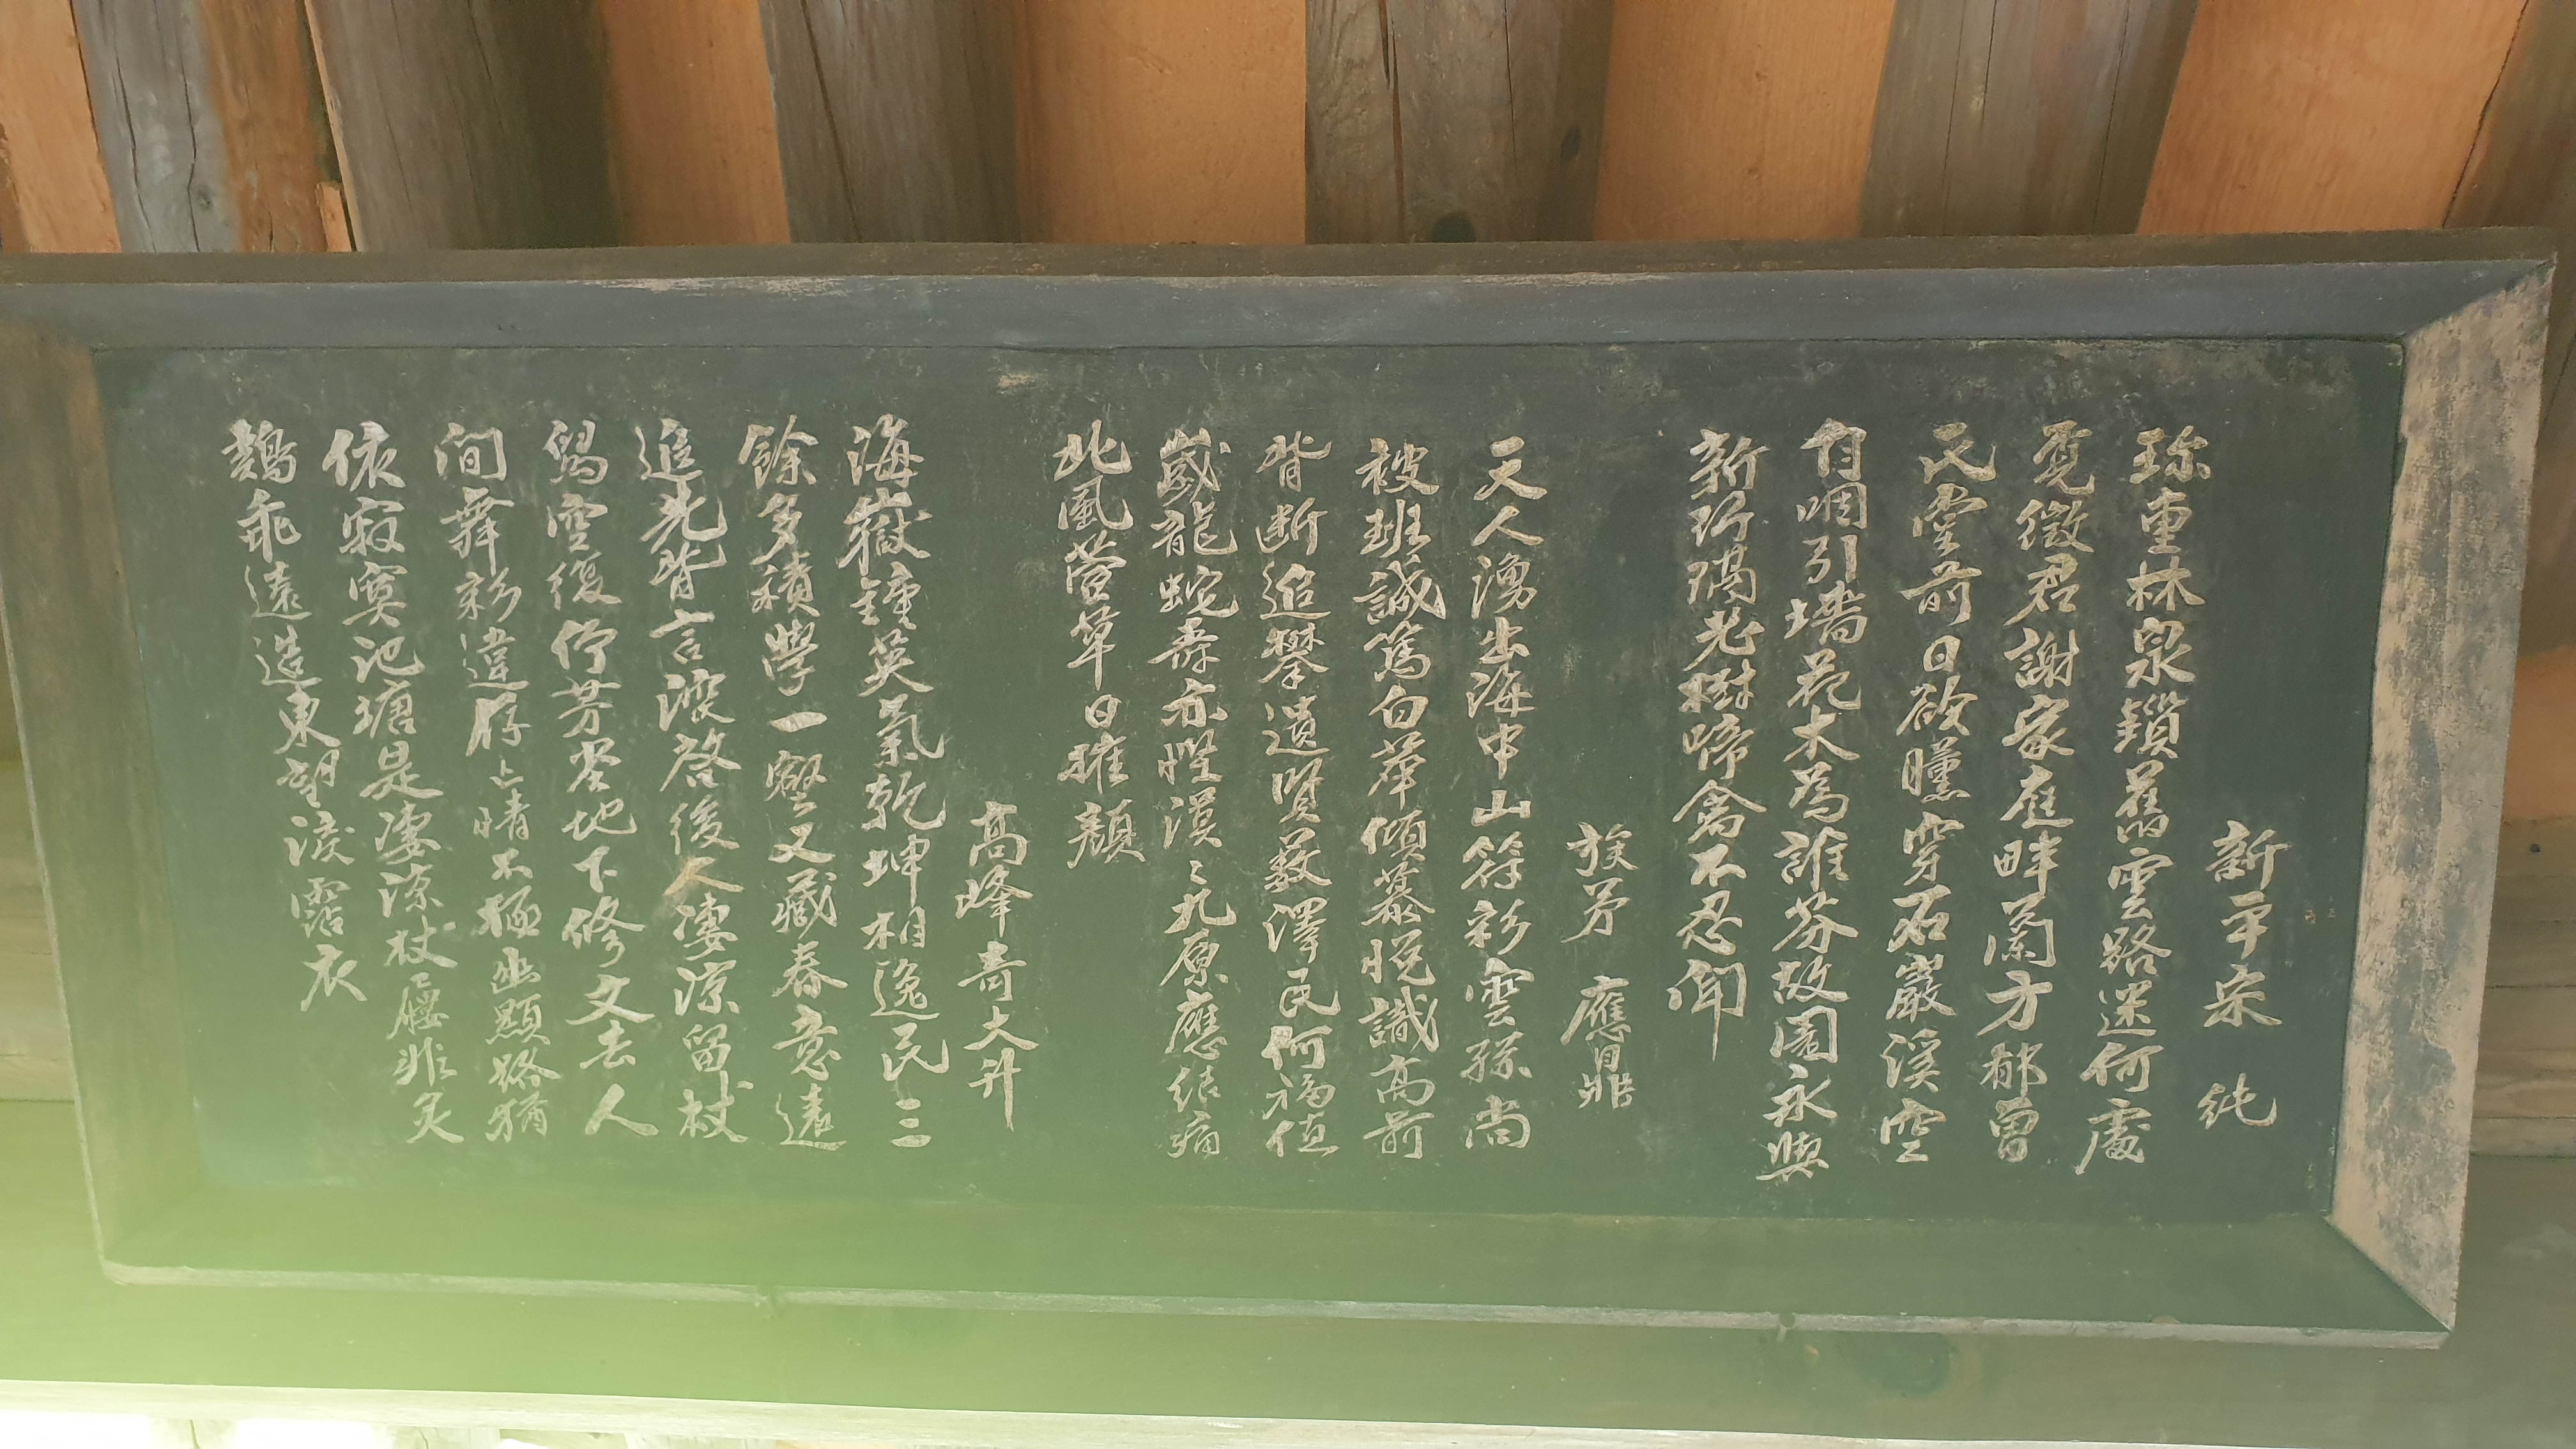 新平宋 純
珎重林泉鎖舊雲路迷何處
覓徵君謝家庭畔蘭方郁曾
氏堂前日欲曛穿石巖溪空
自咽引墻花木為誰芬故園永與
新阡隔老樹啼禽不忍聞
族弟 應鼎
天人湧出海中山符彩雲孫尚
被班誠篤白華傾慕悅識高前
背斷追攀遺賢藪澤民何福值
歲龍蛇壽亦慳漠〻九原應結痛
北風萱草日摧顏
高峰奇大升
海嶽鍾英氣乾坤相逸民三
餘多積學一壑又藏春意遠
追先背言深啓後人凄凉留杖
舄空復佇芳塵地下修文去人
間舞彩違存亡情不極幽顯路猶
依寂寞池塘是凄凉杖屨非炙
鷄乖遠造東望淚霑衣